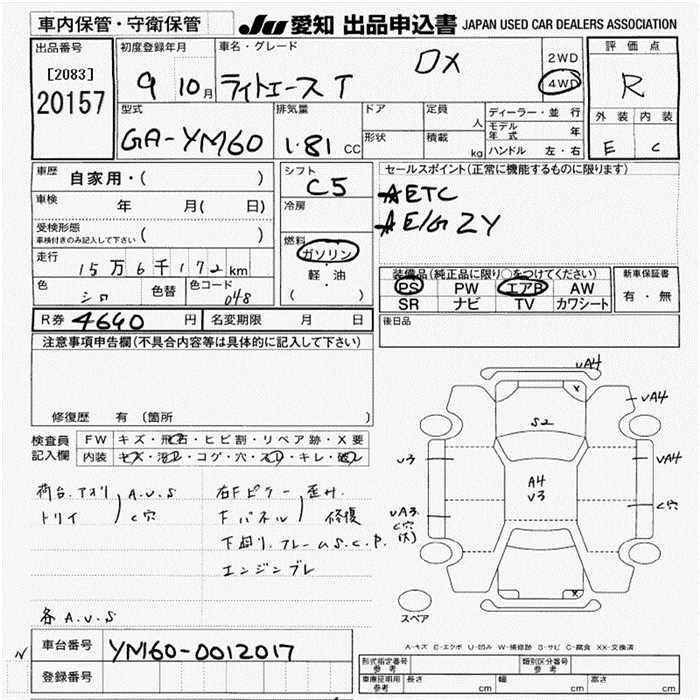 車内保管・守衛保管
JU 愛知 出品申込書 JAPAN USED CAR DEALERS ASSOCIATION
出品番号
[2083]
20157
初度登録年月
9 10月
車名・グレード
ライトエースT DX
2WD
4WD
評価点
R
外装 内装
E C
型式
GA-YM60
排気量
1.81 CC
ドア
形状
定員 人
積載 kg
ディーラー・並行
モデル年式 年
ハンドル 左・右
車歴 自家用・( )
車検 年 月( 日)
受検形態 ( )
車検付きのみ記入して下さい
走行 15万6千172km
色 シロ 色替 色コード 048
シフト C5
冷房
燃料
ガソリン
・
軽・油
( )
セールスポイント(正常に機能するものに限ります)
AETC
AE/G ZY
装備品(純正品に限り○をつけてください)
PS PW エアB AW
SR ナビ TV カワシート
新車保証書
有・無
R券 4640 円 名変期限 月 日
後日品
注意事項申告欄(不具合内容等は具体的に記入して下さい)
修復歴 有(箇所 )
検査員記入欄
FW キズ・飛石・ヒビ割・リペア跡・X要
内装 キズ・汚レ・コゲ・穴・スレ・キレ・破レ
荷台.アオリ A.U.S
トリイ C穴
右Fピラー 歪み.
Fパネル 修復
下廻り.フレームS.C.P.
エンジンブレ
各A.U.S
UA4
UA4
S2
U3
A4
U3
UA4
UA3
C穴
C穴
X
X
スペア
A-キズ E-エクボ U-凹み W-補修跡 S-サビ C-腐食 XX-交換済
N
車台番号 YM60-0012017
登録番号
形式指定番号 参考
類別区分番号 参考
車庫証明用 参考 長さ cm 幅 cm 高さ cm